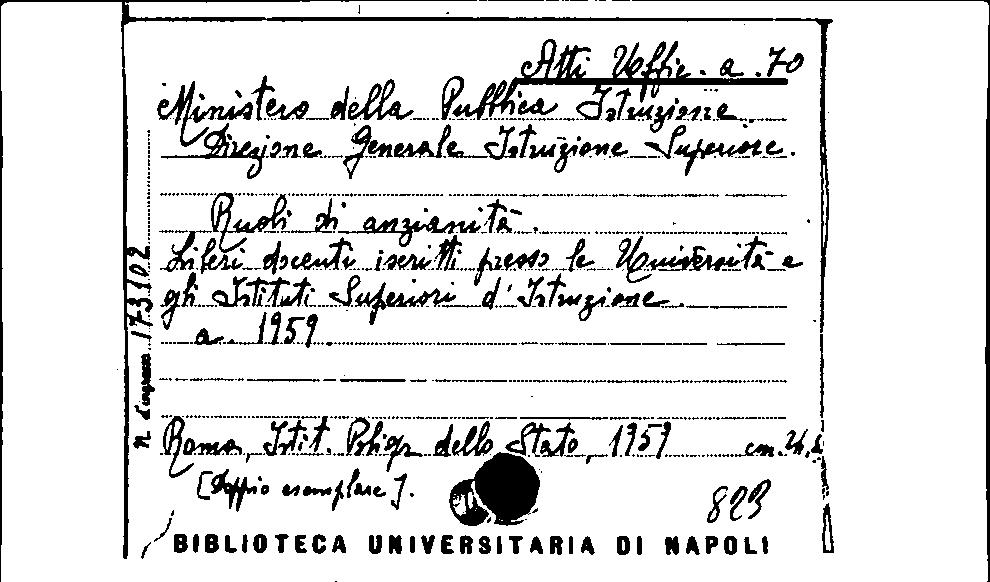 Atti Uffic. a. 70
Ministero della Pubblica Istruzione
Direzione Generale Istruzione Superiore.
Ruoli di anzianità.
Liberi docenti iscritti presso le Università e
gli Istituti Superiori d'Istruzione.
a. 1959.
Roma, Istit. Poligr. dello Stato, 1959 cm. 24,
[Doppio esemplare].
823
N. d'ingresso 173102
BIBLIOTECA UNIVERSITARIA DI NAPOLI